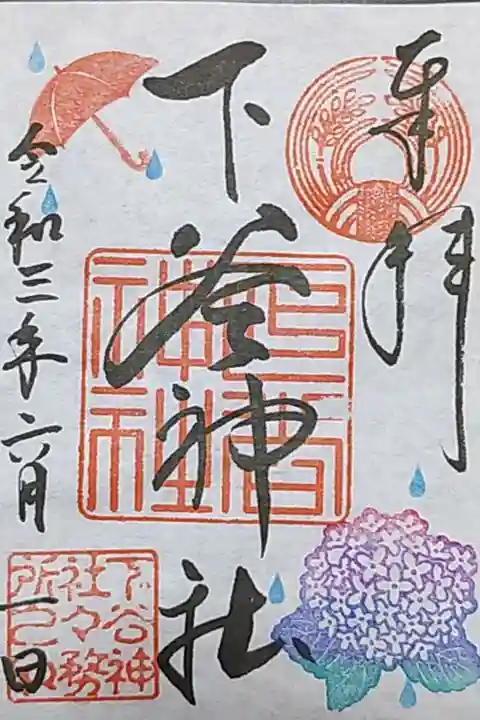 奉拝
下谷神社
下谷
神社
令和三年六月一日
下谷神
社々務
所之印